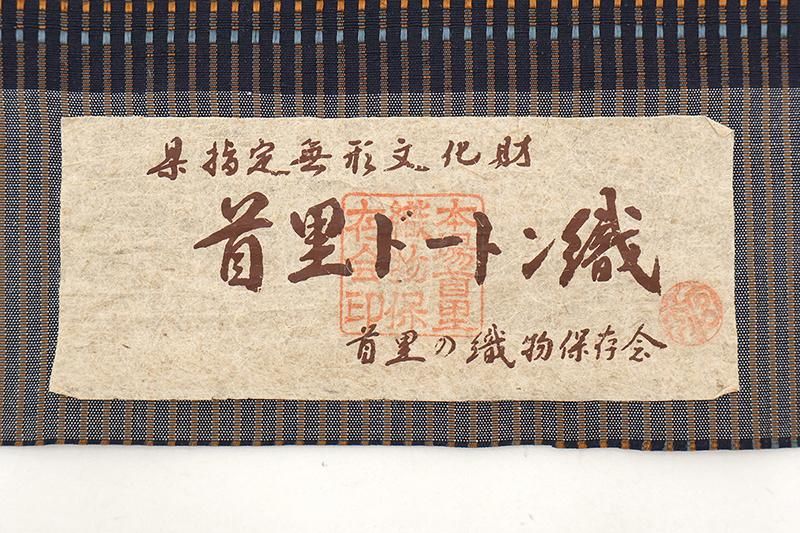 県指定無形文化財
首里ドートン織
本場首里
織物保
存会印
首里の織物保存会